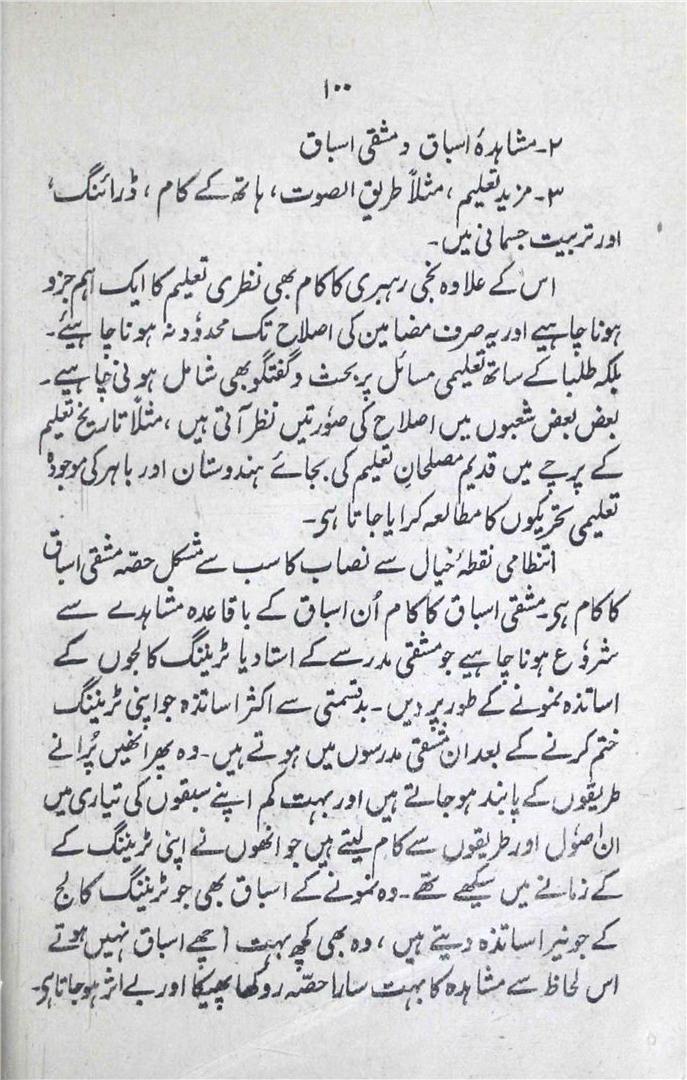 ۱۰۰
۲۔ مشاہدۂ اسباق و مشقی اسباق
۳۔ مزید تعلیم، مثلاً طریق الصوت، ہاتھ کے کام، ڈرائنگ،
اور تربیت جسمانی میں۔
اس کے علاوہ نجی رہبری کا کام بھی نظری تعلیم کا ایک اہم جزو
ہونا چاہیے اور یہ صرف مضامین کی اصلاح تک محدود نہ ہونا چاہیئے۔
بلکہ طلبا کے ساتھ تعلیمی مسائل پر بحث و گفتگو بھی شامل ہونی چاہیے۔
بعض بعض شعبوں میں اصلاح کی صورتیں نظر آتی ہیں، مثلاً تاریخ تعلیم
کے پرچے میں قدیم مصلحانِ تعلیم کی بجائے ہندوستان اور باہر کی موجودہ
تعلیمی تحریکوں کا مطالعہ کرایا جاتا ہی۔
انتظامی نقطۂ خیال سے نصاب کا سب سے مشکل حصّہ مشقی اسباق
کا کام ہی۔ مشقی اسباق کا کام اُن اسباق کے باقاعدہ مشاہدے سے
شروع ہونا چاہیے جو مشقی مدرسے کے استاد یا ٹریننگ کالجوں کے
اساتذہ نمونے کے طور پر دیں۔ بدقسمتی سے اکثر اساتذہ جو اپنی ٹریننگ
ختم کرنے کے بعد ان مشقی مدرسوں میں ہوتے ہیں۔ وہ پھر انھیں پُرانے
طریقوں کے پابند ہو جاتے ہیں اور بہت کم اپنے سبقوں کی تیاری میں
ان اصول اور طریقوں سے کام لیتے ہیں جو انھوں نے اپنی ٹریننگ کے
کے زمانے میں سیکھے تھے۔ وہ نمونے کے اسباق بھی جو ٹریننگ کالج
کے جونیر اساتذہ دیتے ہیں، وہ بھی کچھ بہت اچھے اسباق نہیں ہوتے
اس لحاظ سے مشاہدہ کا بہت سارا حصّہ روکھا پھیکا اور بے اثر ہو جاتا ہی۔